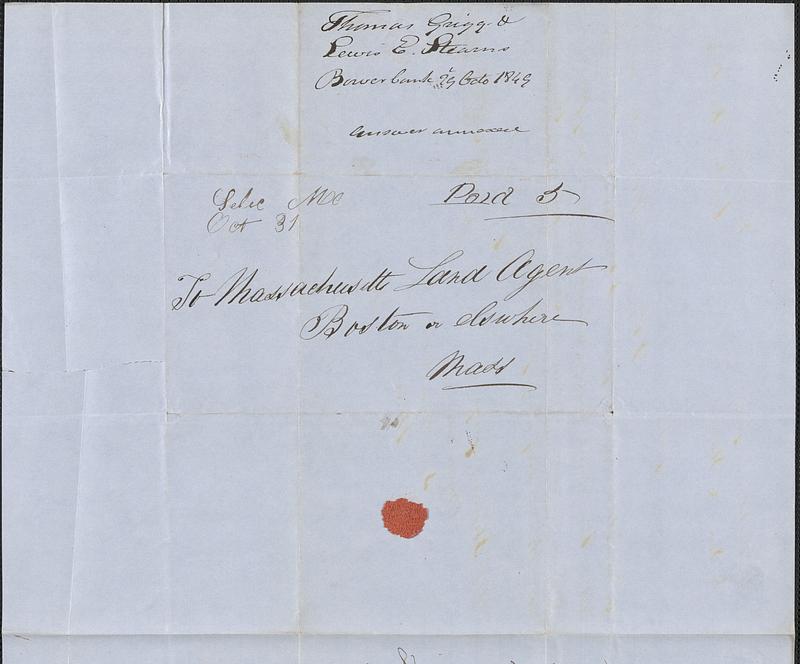 Thomas Grigg &
Lewis E. Stearns
Bowerbank 29 Octo 1849
answer annexed
Sebec Me
Oct 31
Paid 5
To Massachusetts Land Agent
Boston or elswhere
Mass